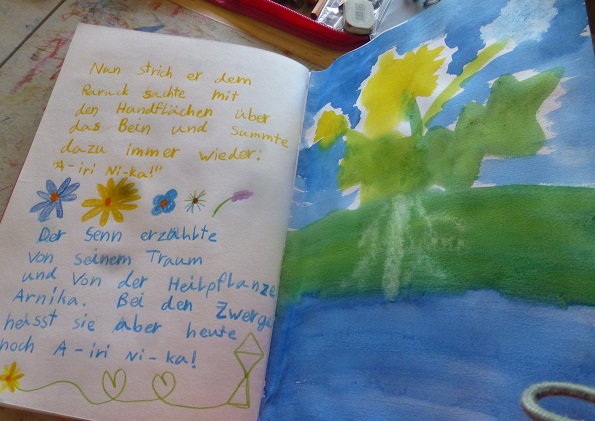 Nun strich er dem
Paruck sachte mit
den Handflächen über
das Bein und summte
dazu immer wieder:
"A-iri Ni-ka!"
Der Senn erzählte
von seinem Traum
und von der Heilpflanze
Arnika. Bei den Zwerge
heisst sie aber heute
noch A-iri Ni-ka!